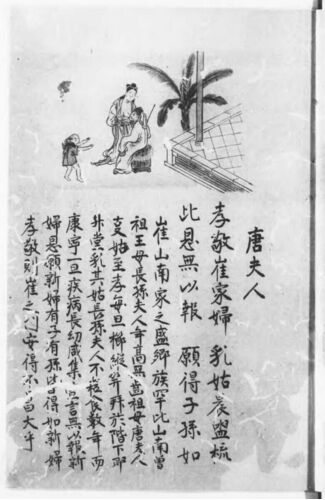 唐夫人
孝敬崔家婦 乳姑晨盥梳
此恩無以報 願得子孫如
崔山南家之盛鄉族罕比山南曾
祖王母長孫夫人年髙無齒祖母唐夫人
事姑至孝每旦櫛縰笄拜於階下即
升堂乳其姑長孫夫人不粒食數年而
康寧一旦疾病長幼咸集言無以報新
婦恩願新婦有子有孫皆得如新婦
孝敬則崔之門安得不昌大乎